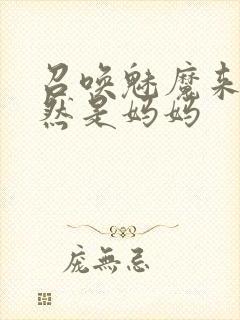 召唤魅魔来
然是妈妈
庞無忌